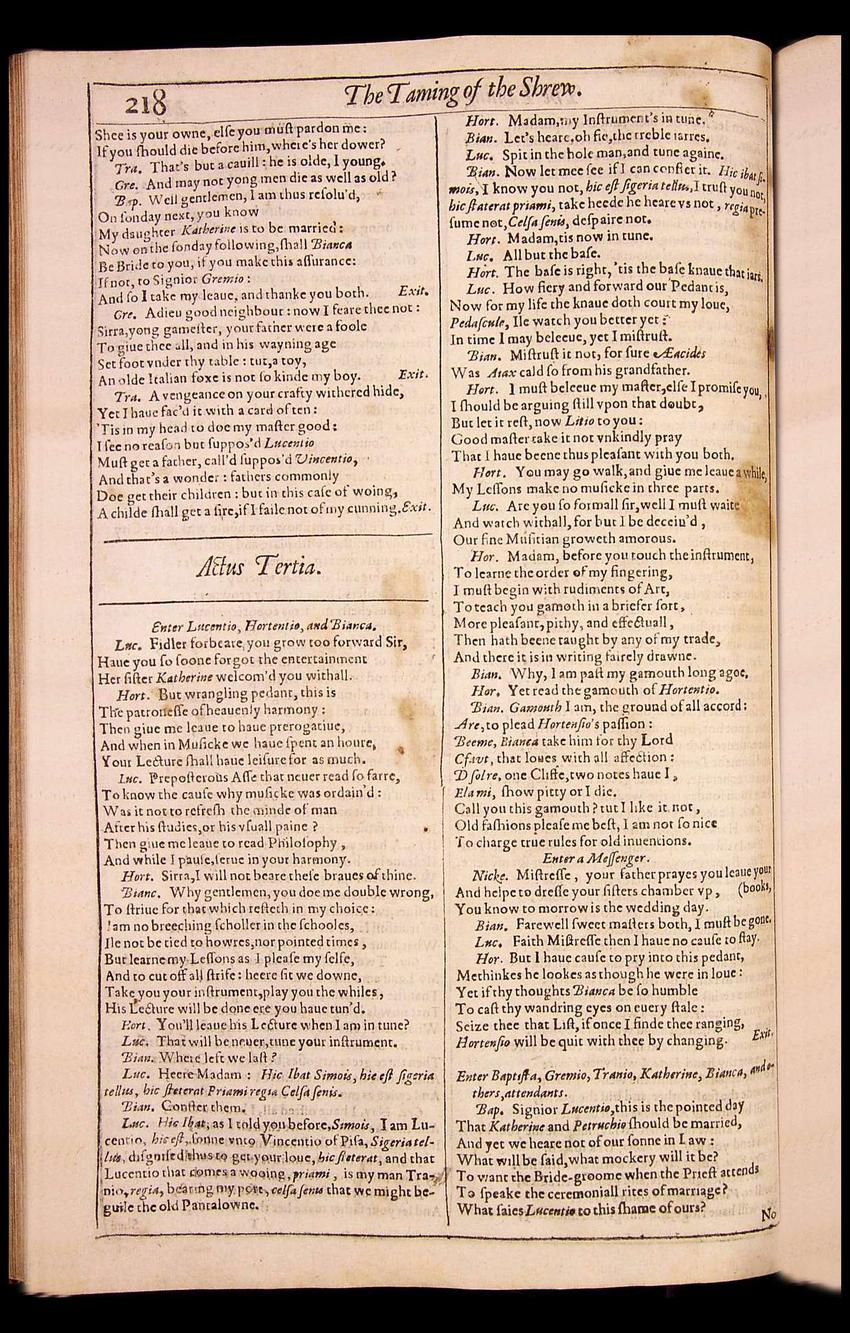 218
The Taming of the Shrew.
Shee is your owne, elſe you muſt pardon me:
If you ſhould die before him, where's her dower?
Tra. That's but a cauill: he is olde, I young.
Gre. And may not yong men die as well as old?
Bap. Well gentlemen, I am thus reſolu'd,
On ſonday next, you know
My daughter Katherine is to be married:
Now on the ſonday following, ſhall Bianca
Be Bride to you, if you make this aſſurance:
If not, to Signior Gremio:
And ſo I take my leaue, and thanke you both. Exit.
Gre. Adieu good neighbour: now I feare thee not:
Sirra, yong gameſter, your father were a foole
To giue thee all, and in his wayning age
Set foot vnder thy table: tut, a toy,
An olde Italian foxe is not ſo kinde my boy. Exit.
Tra. A vengeance on your crafty withered hide,
Yet I haue fac'd it with a card of ten:
'Tis in my head to doe my maſter good:
I ſee no reaſon but ſuppos'd Lucentio
Muſt get a father, call'd ſuppos'd Vincentio,
And that's a wonder: fathers commonly
Doe get their children: but in this caſe of woing,
A childe ſhall get a ſire, if I faile not of my cunning. Exit.
Actus Tertia.
Enter Lucentio, Hortentio, and Bianca.
Luc. Fidler forbeare, you grow too forward Sir,
Haue you ſo ſoone forgot the entertainment
Her ſiſter Katherine welcom'd you withall.
Hort. But wrangling pedant, this is
The patroneſſe of heauenly harmony:
Then giue me leaue to haue prerogatiue,
And when in Muſicke we haue ſpent an houre,
Your Lecture ſhall haue leiſure for as much.
Luc. Prepoſterous Aſſe that neuer read ſo farre,
To know the cauſe why muſicke was ordain'd:
Was it not to refreſh the minde of man
After his ſtudies, or his vſuall paine?
Then giue me leaue to read Philoſophy,
And while I pauſe, ſerue in your harmony.
Hort. Sirra, I will not beare theſe braues of thine.
Bianc. Why gentlemen, you doe me double wrong,
To ſtriue for that which reſteth in my choice:
I am no breeching ſcholler in the ſchooles,
Ile not be tied to howres, nor pointed times,
But learne my Leſſons as I pleaſe my ſelfe,
And to cut off all ſtrife: heere ſit we downe,
Take you your inſtrument, play you the whiles,
His Lecture will be done ere you haue tun'd.
Hort. You'll leaue his Lecture when I am in tune?
Luc. That will be neuer, tune your inſtrument.
Bian. Where left we laſt?
Luc. Heere Madam: Hic Ibat Simois, hic eſt ſigeria
tellus, hic ſteterat Priami regia Celſa ſenis.
Bian. Conſter them.
Luc. Hic Ibat, as I told you before, Simois, I am Lu-
centio, hic eſt, ſonne vnto Vincentio of Piſa, Sigeria tel-
lus, diſguiſed thus to get your loue, hic ſteterat, and that
Lucentio that comes a wooing, priami, is my man Tra-
nio, regia, bearing my port, celſa ſenis that we might be-
guile the old Pantalowne.
Hort. Madam, my Inſtrument's in tune.
Bian. Let's heare, oh fie, the treble iarres.
Luc. Spit in the hole man, and tune againe.
Bian. Now let mee ſee if I can conſter it. Hic ibat ſi-
mois, I know you not, hic eſt ſigeria tellus, I truſt you not,
hic ſtaterat priami, take heede he heare vs not, regia pre-
ſume not, Celſa ſenis, deſpaire not.
Hort. Madam, tis now in tune.
Luc. All but the baſe.
Hort. The baſe is right, 'tis the baſe knaue that iars.
Luc. How fiery and forward our Pedant is,
Now for my life the knaue doth court my loue,
Pedaſcule, Ile watch you better yet:
In time I may beleeue, yet I miſtruſt.
Bian. Miſtruſt it not, for ſure Æacides
Was Aiax cald ſo from his grandfather.
Hort. I muſt beleeue my maſter, elſe I promiſe you,
I ſhould be arguing ſtill vpon that doubt,
But let it reſt, now Litio to you:
Good maſter take it not vnkindly pray
That I haue beene thus pleaſant with you both.
Hort. You may go walk, and giue me leaue a while,
My Leſſons make no muſicke in three parts.
Luc. Are you ſo formall ſir, well I muſt waite
And watch withall, for but I be deceiu'd,
Our fine Muſitian groweth amorous.
Hor. Madam, before you touch the inſtrument,
To learne the order of my fingering,
I muſt begin with rudiments of Art,
To teach you gamoth in a briefer ſort,
More pleaſant, pithy, and effectuall,
Then hath beene taught by any of my trade,
And there it is in writing fairely drawne.
Bian. Why, I am paſt my gamouth long agoe.
Hor. Yet read the gamouth of Hortentio.
Bian. Gamouth I am, the ground of all accord:
Are, to plead Hortenſio's paſſion:
Beeme, Bianca take him for thy Lord
Cfavt, that loues with all affection:
D ſolre, one Cliffe, two notes haue I,
Ela mi, ſhow pitty or I die.
Call you this gamouth? tut I like it not,
Old faſhions pleaſe me beſt, I am not ſo nice
To charge true rules for old inuentions.
Enter a Meſſenger.
Nicke. Miſtreſſe, your father prayes you leaue your
And helpe to dreſſe your ſiſters chamber vp, (books,
You know to morrow is the wedding day.
Bian. Farewell ſweet maſters both, I muſt be gone.
Luc. Faith Miſtreſſe then I haue no cauſe to ſtay.
Hor. But I haue cauſe to pry into this pedant,
Methinkes he lookes as though he were in loue:
Yet if thy thoughts Bianca be ſo humble
To caſt thy wandring eyes on euery ſtale:
Seize thee that Liſt, if once I finde thee ranging,
Hortenſio will be quit with thee by changing. Exit.
Enter Baptiſta, Gremio, Tranio, Katherine, Bianca, and o-
thers, attendants.
Bap. Signior Lucentio, this is the pointed day
That Katherine and Petruchio ſhould be married,
And yet we heare not of our ſonne in Law:
What will be ſaid, what mockery will it be?
To want the Bride-groome when the Prieſt attends
To ſpeake the ceremoniall rites of marriage?
What ſaies Lucentio to this ſhame of ours?
No